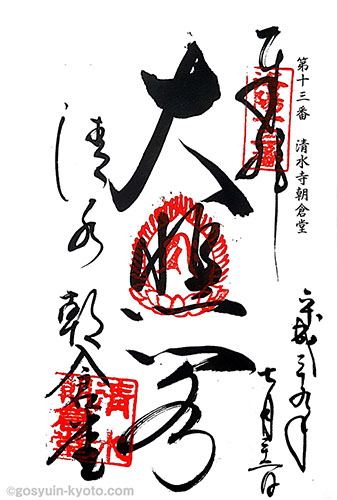 第十三番 清水寺朝倉堂
奉拝
大悲閣
清水
朝倉堂
清水
朝倉堂
©gosyuin-kyoto.com